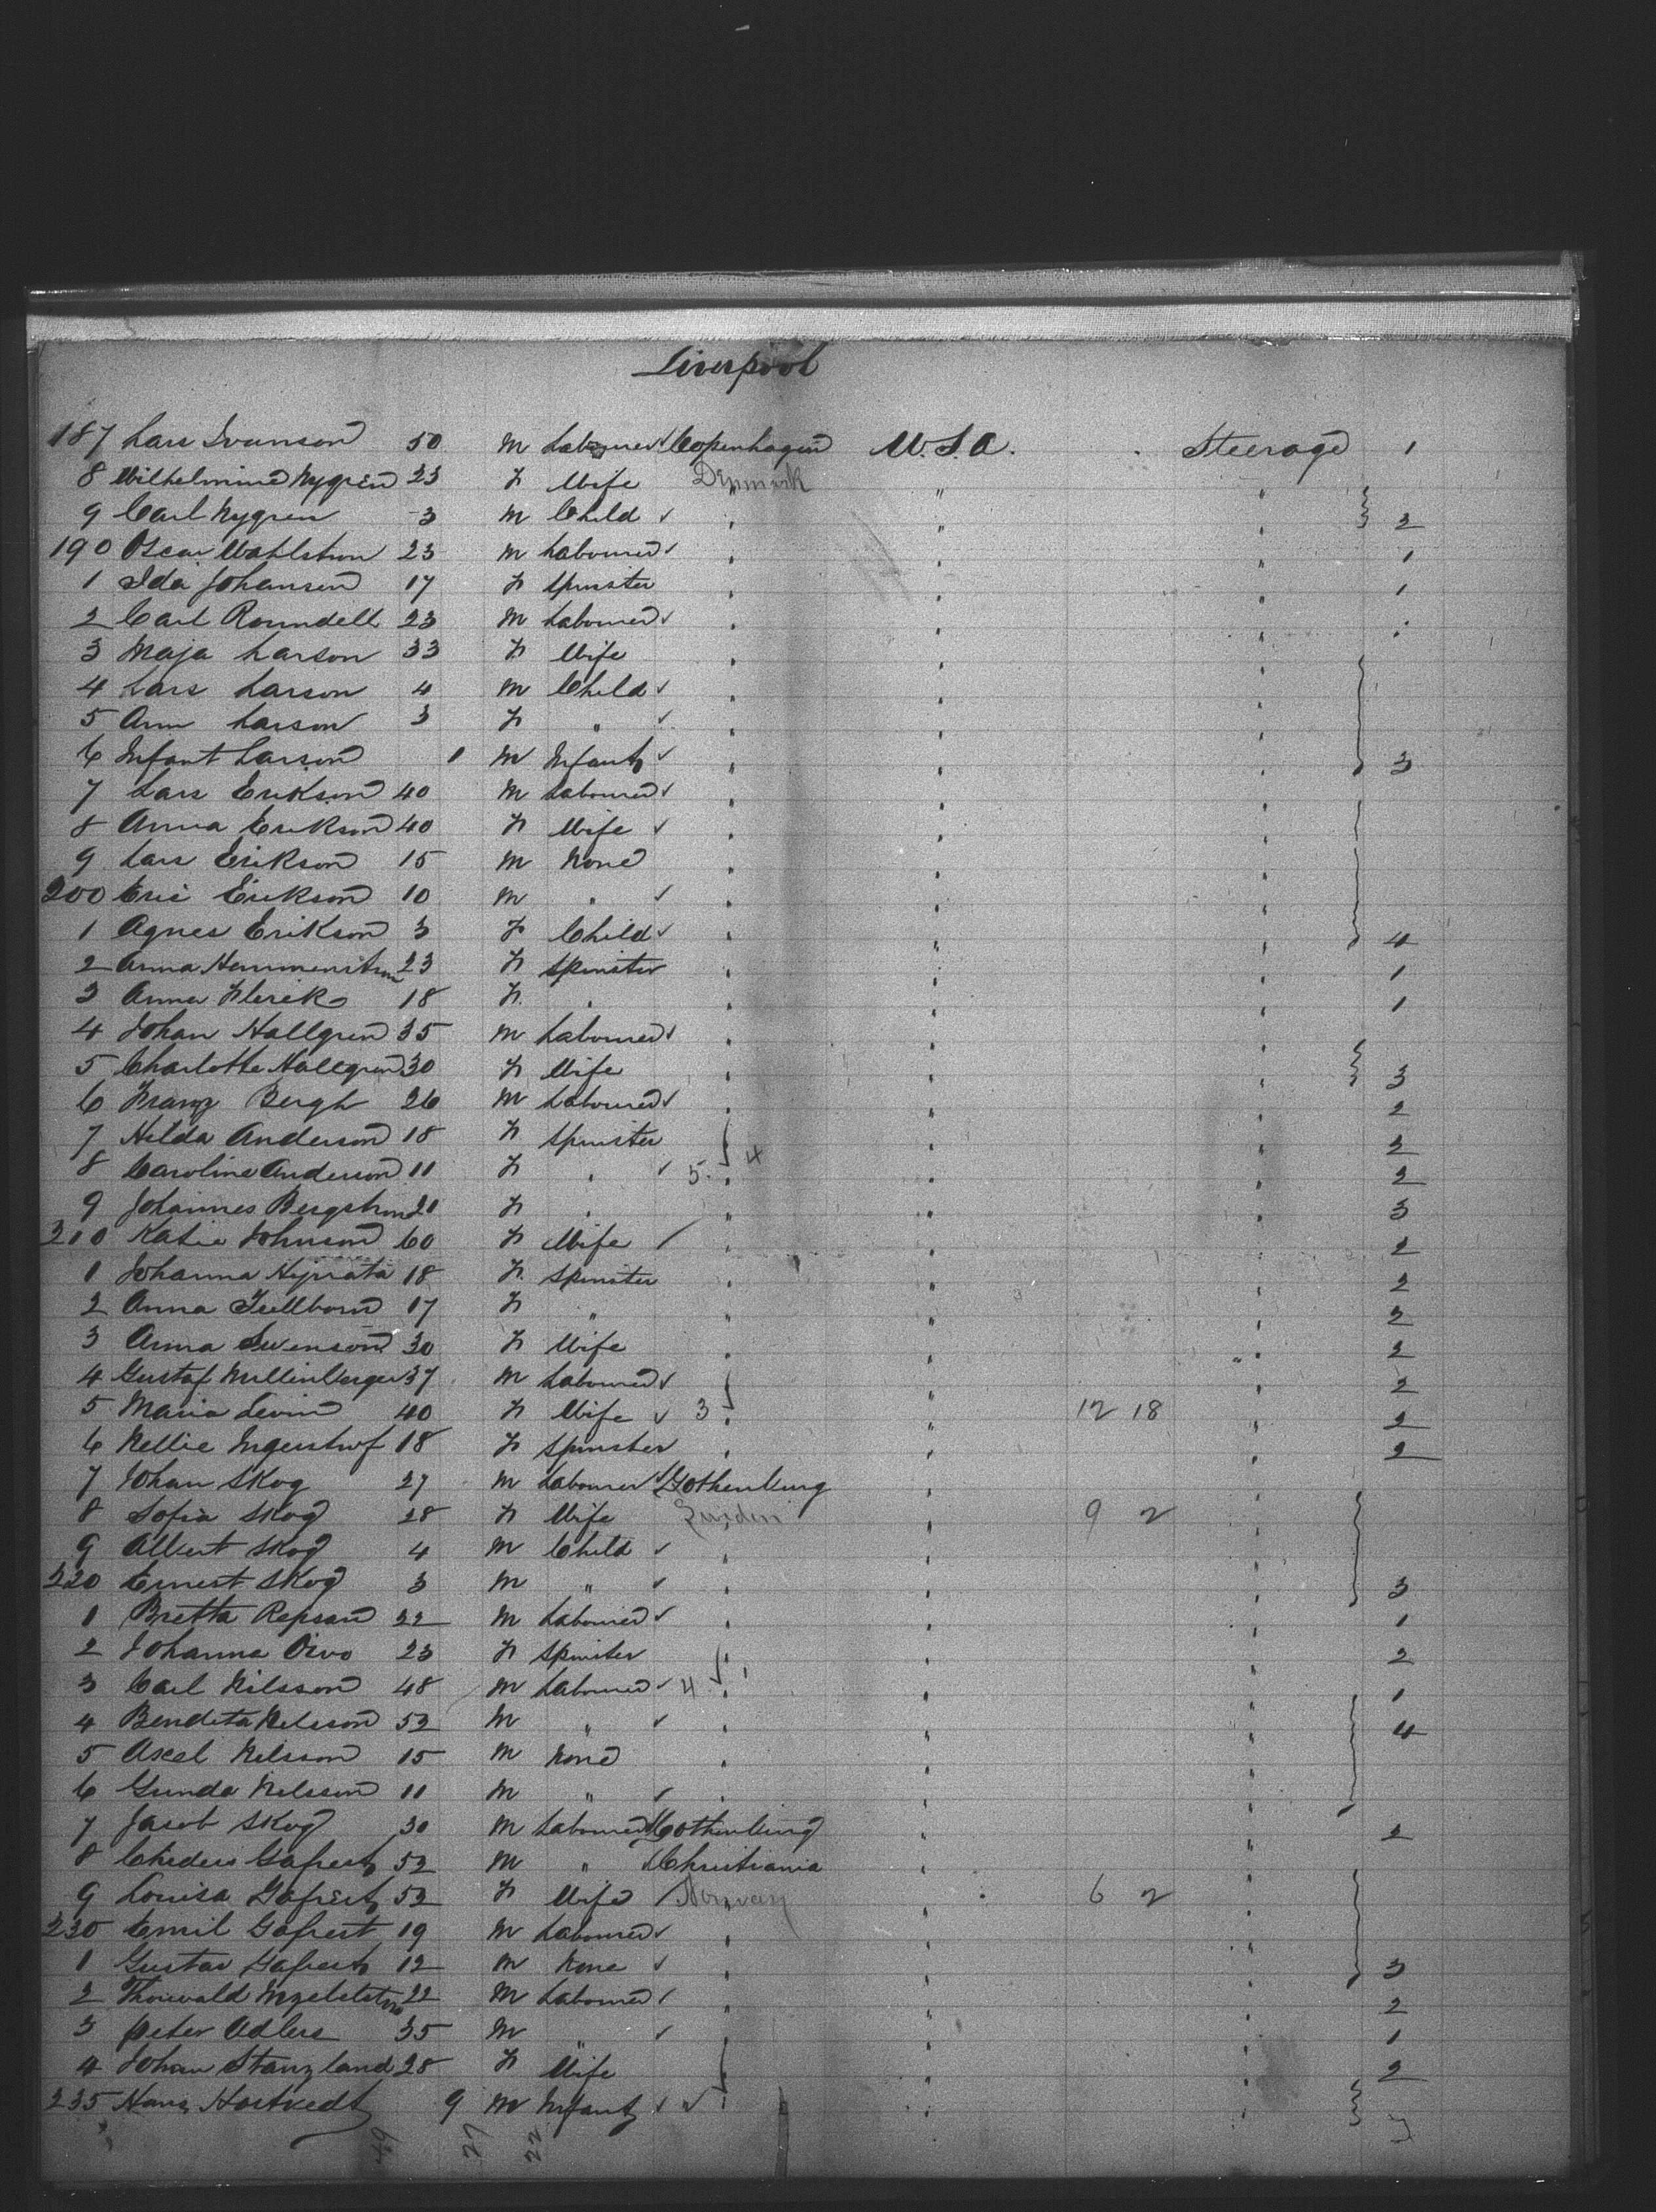 Liverpool
187 Lars Svanson 50 M Labourer ✓ Copenhagen U.S.A. Steerage 1
8 Wilhelmina Nygren 23 F Wife Denmark " "
9 Carl Nygren 3 M Child ✓ " " " 2
190 Oscar Wahlstrom 23 M Labourer ✓ " " " 1
1 Ida Johanson 17 F Spinster " " " 1
2 Carl Roundell 23 M Labourer ✓ " " "
3 Maja Larson 33 F Wife " " "
4 Lars Larson 4 M Child ✓ " " "
5 Ann Larson 3 F " ✓ " " "
6 Infant Larson 1 M Infant ✓ " " " 3
7 Lars Erikson 40 M Labourer ✓ " " "
8 Anna Erikson 40 F Wife ✓ " " "
9 Lars Erikson 15 M None " " "
200 Eric Erikson 10 M " ✓ " " "
1 Agnes Erikson 3 F Child ✓ " " " 4
2 Anna 23 F Spinster " " " 1
3 Anna 18 F " " " " 1
4 Johan Hallgren 35 M Labourer ✓ " " "
5 Charlotte Hallgren 30 F Wife " " " 3
6 Franz Bergh 26 M Labourer ✓ " " " 2
7 Hilda Anderson 18 F Spinster " " " 2
8 Caroline Anderson 11 F " ✓ 5 4 " " " 2
9 Johannes Bergstrom 21 F " " " " 3
210 Katie Johnson 60 F Wife ✓ " " " 2
1 Johanna 18 F Spinster " " " 2
2 Anna 17 F " " " " 2
3 Anna Swenson 30 F Wife " " " 2
4 Gustaf 37 M Labourer ✓ " " " 2
5 Maria Levin 40 F Wife ✓ 3 " " 12 18 " 2
6 Nellie 18 F Spinster " " " 2
7 Johan Skog 27 M Labourer ✓ Gothenburg " "
8 Sofia Skog 28 F Wife " " 9 2 "
9 Albert Skog 4 M Child ✓ " " "
220 Ernest Skog 3 M " ✓ " " " 3
1 Bretta 22 M Labourer ✓ " " " 1
2 Johanna 23 F Spinster " " " 2
3 Carl Nilsson 48 M Labourer ✓ 4 " " " 1
4 Bendita Nilsson 52 M " ✓ " " " 4
5 Axel Nilsson 15 M None " " "
6 Gunda Nilsson 11 M " ✓ " " "
7 Jacob Skog 30 M Labourer ✓ Gothenburg " " 2
8 52 M " ✓ Christiania " "
9 Louisa 52 F Wife ✓ Norway " 6 2 "
230 Emil 19 M Labourer ✓ " " "
1 Gustav 12 M None ✓ " " " 3
2 Thorwald 22 M Labourer ✓ " " " 2
3 Peter Adlers 35 M " ✓ " " " 1
4 Johan Stanzland 28 F Wife " " " 2
235 Hans Hostvedt 9 M Infant ✓ ✓ " " "
49 27 22